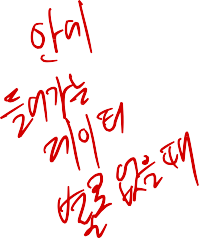 안에
들어가는
데이터
별로 없을 때